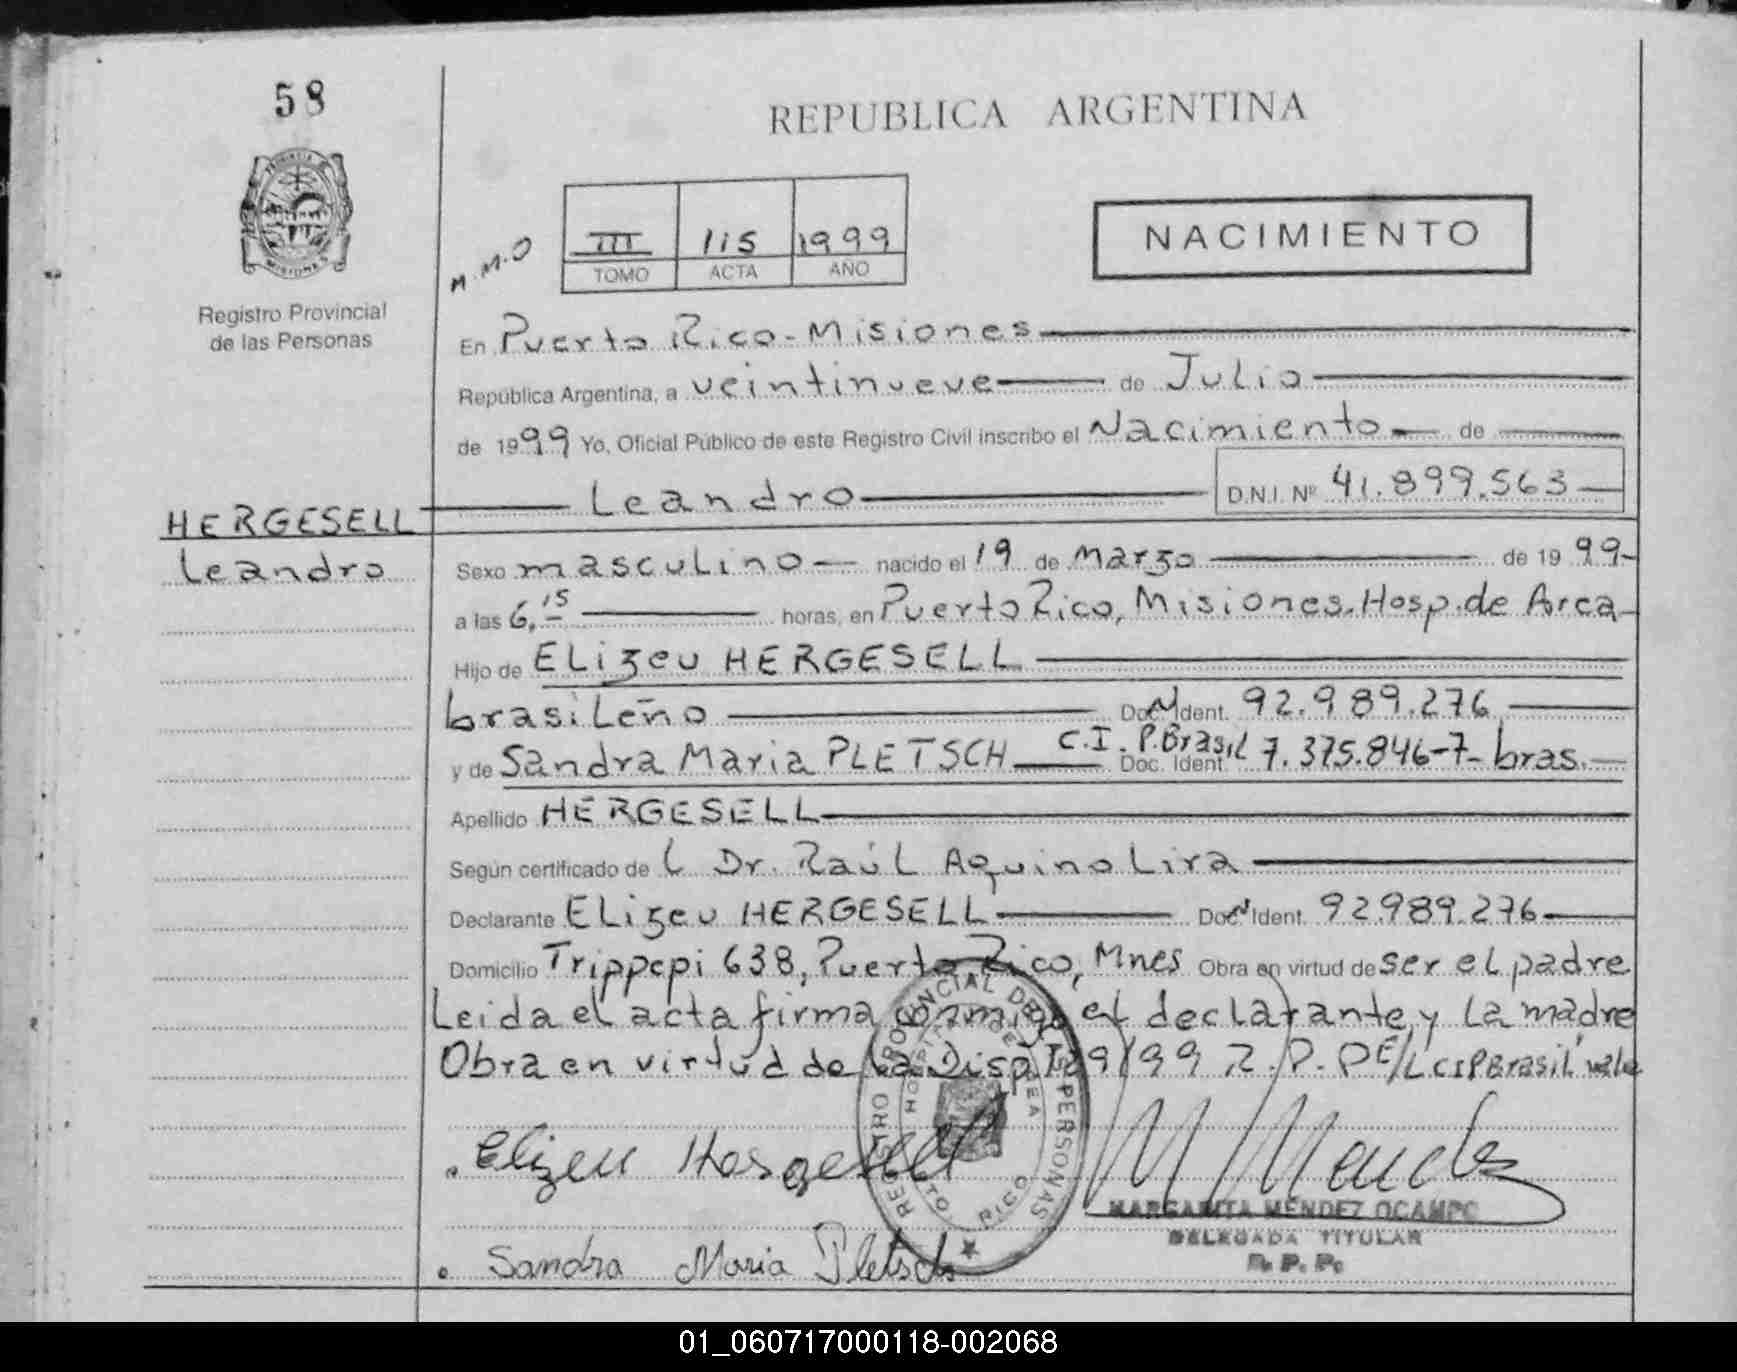 58
REPUBLICA ARGENTINA
PROVINCIA DE
MISIONES
Registro Provincial
de las Personas
M.M.O
III 115 1999
TOMO ACTA AÑO
NACIMIENTO
En Puerto Rico-Misiones
República Argentina, a veintinueve de Julio
de 1999 Yo, Oficial Público de este Registro Civil inscribo el Nacimiento de
Leandro D.N.I. Nº 41.899.563
HERGESELL
Leandro
Sexo masculino nacido el 19 de Marzo de 1999
a las 6,15 horas, en Puerto Rico, Misiones. Hosp. de Area
Hijo de Elizeu HERGESELL
brasileño Doc. Ident. 92.989.276
y de Sandra Maria PLETSCH C.I. P. Brasil Doc. Ident. 7.375.846-7- bras.
Apellido HERGESELL
Según certificado de l Dr. Raúl Aquino Lira
Declarante Elizeu HERGESELL Doc. Ident. 92.989.276
Domicilio Trippepi 638, Puerto Rico, Mnes Obra en virtud de ser el padre
Leida el acta firma conmigo el declarante y la madre
Obra en virtud de la Disp. 129/99 R.P.P E/L "CIPBrasil" vale
Elizeu Hergesell
M Mendez
MARGARITA MÉNDEZ OCAMPO
DELEGADA TITULAR
R. P. P.
Sandra Maria Pletsch
REGISTRO PROVINCIAL DE LAS PERSONAS
HOSPITAL DE AREA
PTO RICO
01_060717000118-002068